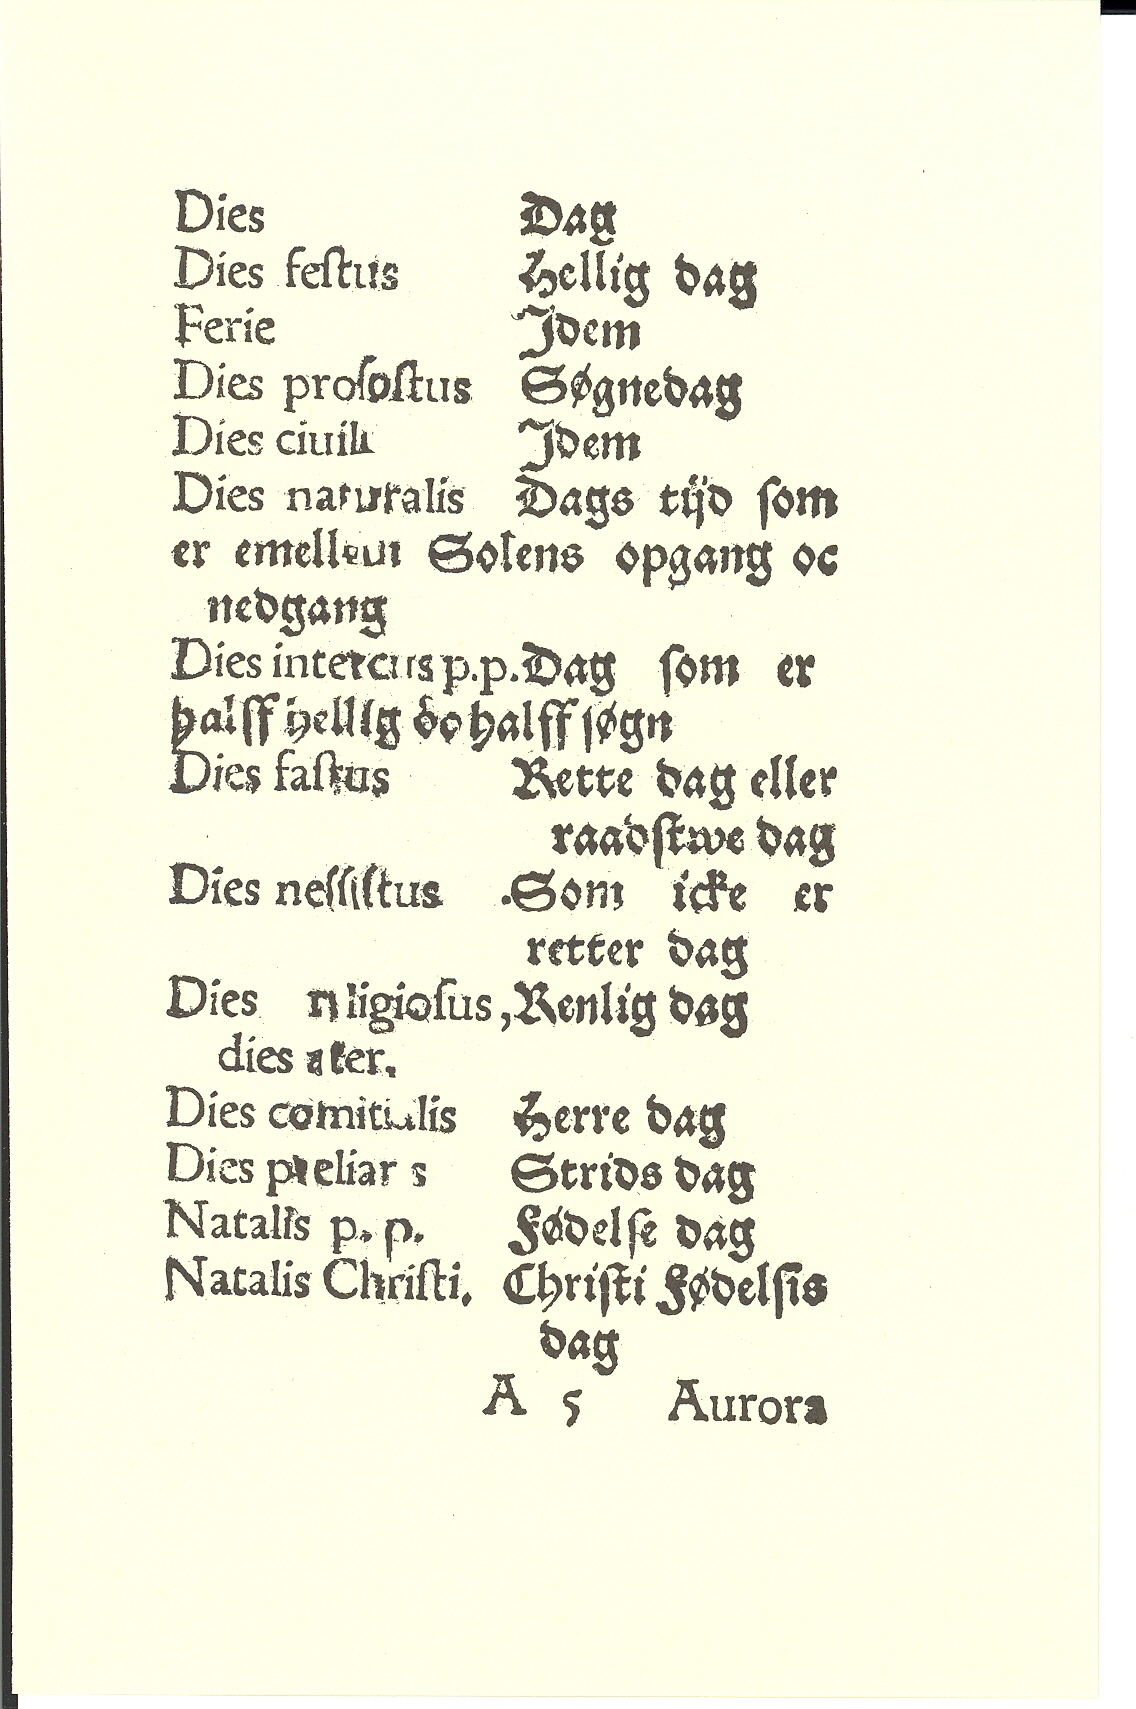 Dies Dag
Dies feſtus Hellig dag
Ferie Jdem
Dies proſoſtus Søgnedag
Dies ciuili Jdem
Dies naturalis Dags tijd ſom
er emellom Solens opgang oc
nedgang
Dies intercus p.p. Dag ſom er
halff hellig oc halff ſøgn
Dies faſtus Rette dag eller
raadſtwe dag
Dies Som icke er
retter dag
Dies religioſus, Renlig dag
dies ater.
Dies comitialis Herre dag
Dies preliaris Strids dag
Natalis p. p. Fødelſe dag
Natalis Chriſti. Chriſti Fødelſis
dag
A 5 Aurora